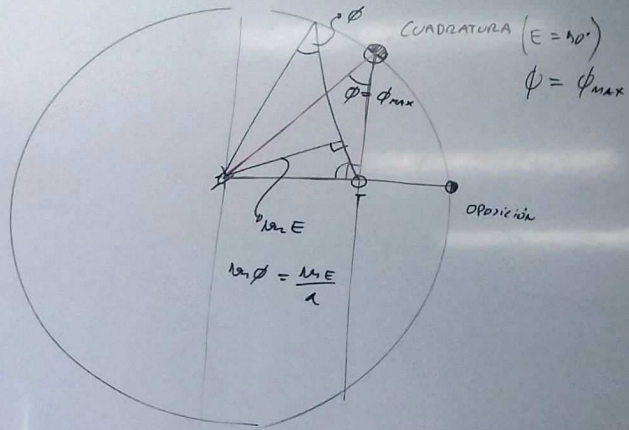 φ
CUADRATURA (E = 90°)
φ = φMAX
φ = φMAX
T
OPOSICIÓN
sen E
sen φ = sen E / a